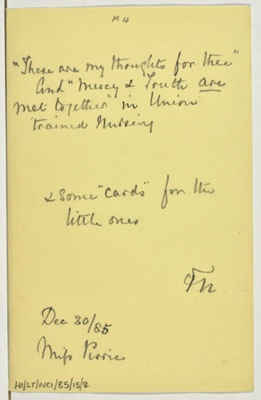 M4
"These are my thoughts for thee"
And "Mercy & Truth are
met together" in Union
trained Nursing
& some "cards" for the
little ones
FN
Dec 30/85
Miss Pirrie
H1/ST/NC1/85/15/2